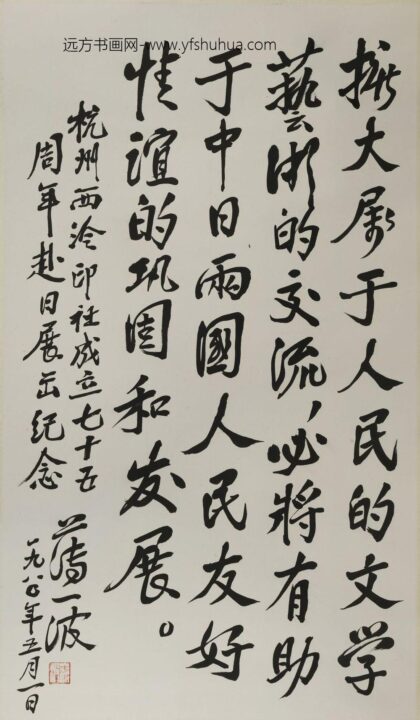 远方书画网--www.yfshuhua.com
擴大属于人民的文学
藝術的交流，必將有助
于中日兩國人民友好
情誼的巩固和发展。
杭州西泠印社成立七十五
周年赴日展出纪念
薄一波
一九八〇年五月一日